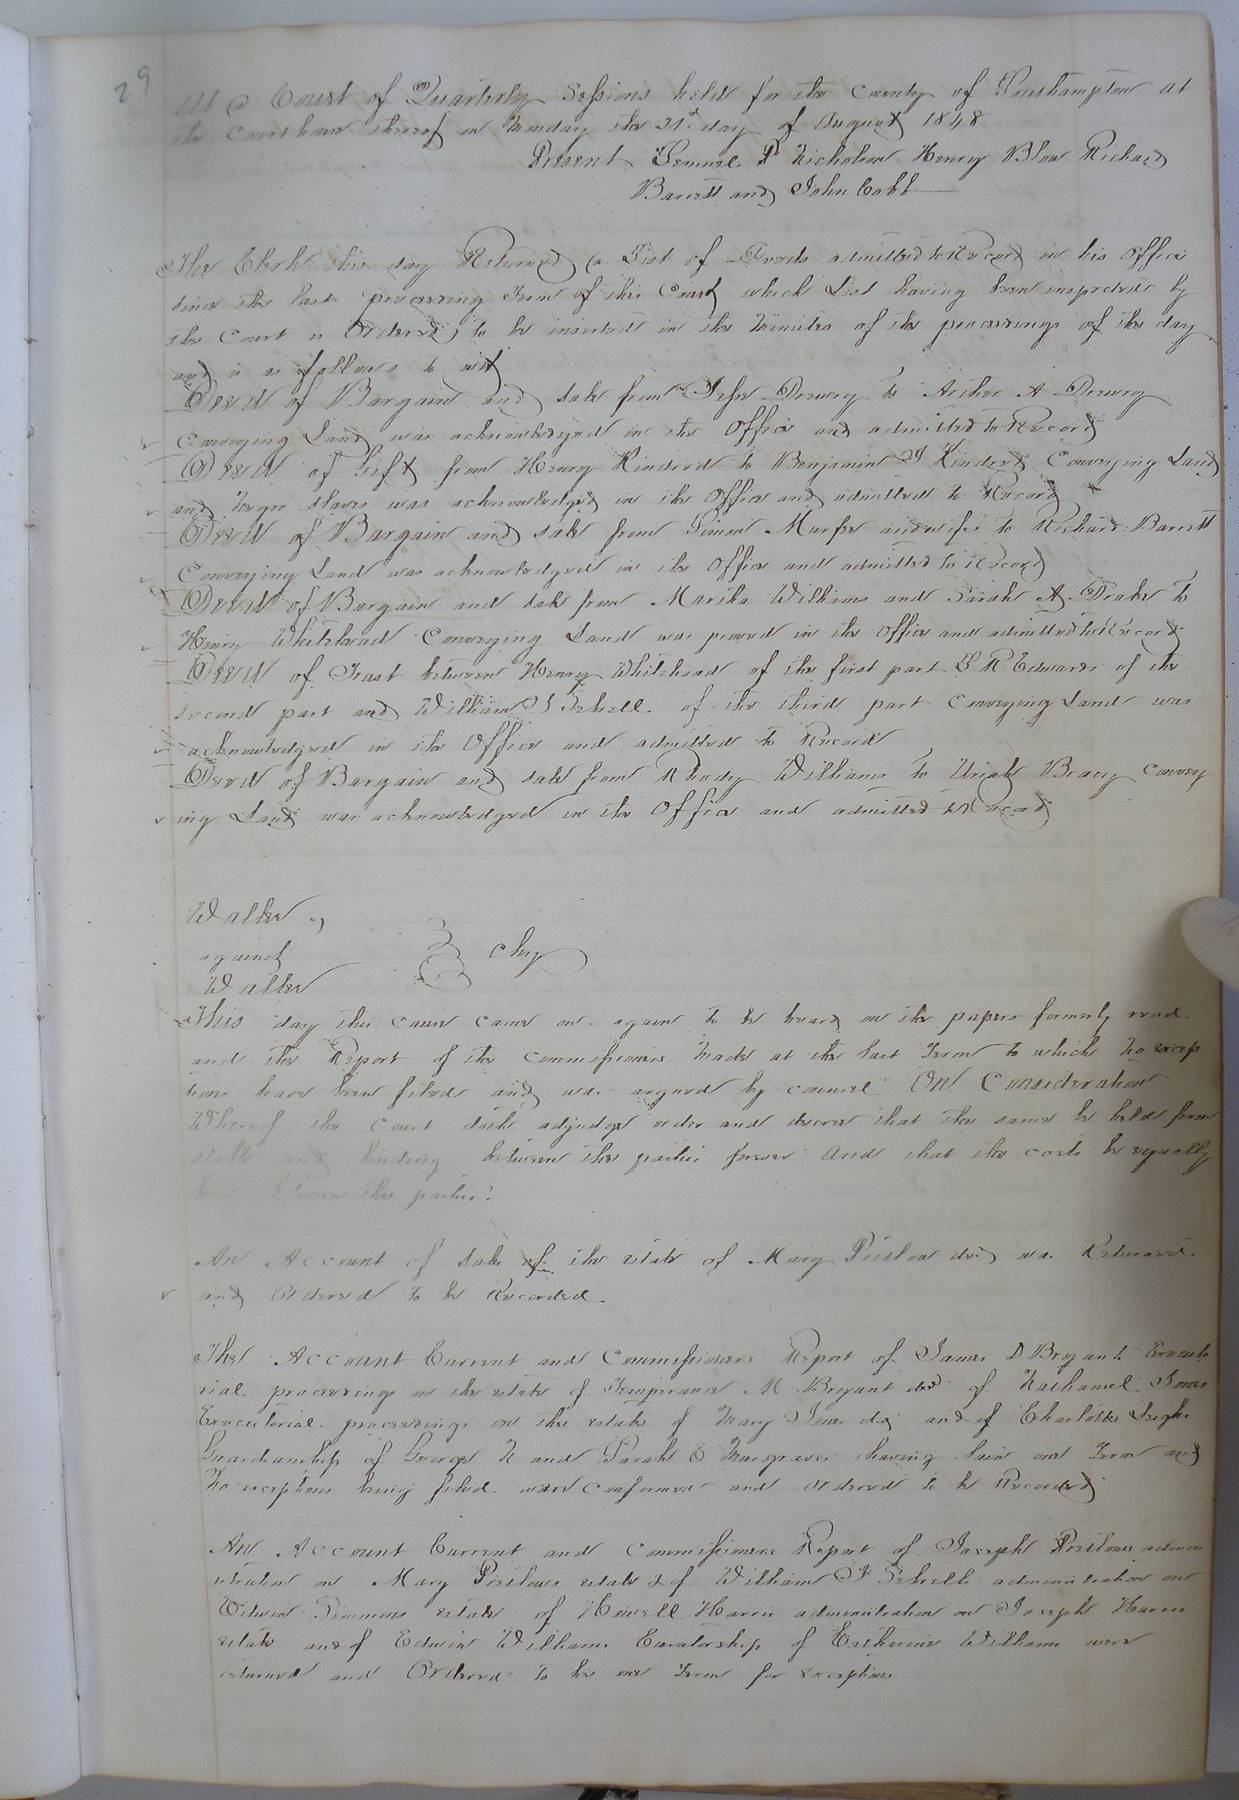 29
At a Court of Quarterly Sessions held for the County of Southampton at
the Courthouse thereof on Monday the 21st day of August 1848
Present Lemuel P Nicholson Henry Blow Richard
Barrett and John Cobb
The Clerk this day Returned a List of Deeds admitted to Record in his Office
since the last proceeding Term of this Court which List having been inspected by
the Court is Ordered to be inserted in the Minutes of the proceedings of the day
and is as follows to wit
Deed of Bargain and sale from Jesse Drewry to Archer A Drewry
Conveying Land was acknowledged in the Office and admitted to Record
Deed of Gift from Henry Kindred to Benjamin Kindred Conveying Land
and Negro slaves was acknowledged in the Office and admitted to Record
Deed of Bargain and sale from Simon Murfee and wife to Richard Barrett
Conveying Land was acknowledged in the Office and admitted to Record
Deed of Bargain and sale from Martha Williams and Sarah A Drake to
Henry Whitehead Conveying Land was proved in the Office and admitted to Record
Deed of Trust between Henry Whitehead of the first part R Edwards of the
second part and William of the third part Conveying Land was
acknowledged in the Office and admitted to Record
Deed of Bargain and sale from Rhody Williams to Uriah Bracy Convey
ing Land was acknowledged in the Office and admitted to Record
Walker
against
Chy
Walker
This day this cause came on again to be heard on the papers formerly read
and the Report of the Commissioners made at the last Term to which No excep
tions have been filed and was argued by counsel On Consideration
Whereof the Court doth adjudge order and decree that the same be held firm
stable and binding between the parties forever And that the costs be equally
between the parties
An Account of Sale of the estate of Mary Pristow decd was Returned
and Ordered to be Recorded
The Account Current and Commissioners Report of James D Bryant Executo
rial proceedings on the estate of Temperance M Bryant decd of Nathaniel Jones
Executorial proceedings on the estate of Mary Jones decd and of Charlotte
Guardianship of George N and Sarah E Musgrave having lain one Term and
No exceptions being filed were confirmed and ordered to be Recorded
An Account Current and Commissioners Report of Joseph Pristows admini
stration on Mary Pristows estate & of William administration on
Simmons estate of Howell Harris administration on Joseph Harris
estate and of Edwin Williams Curatorship of Catharine Williams were
returned and Ordered to lie one Term for exceptions